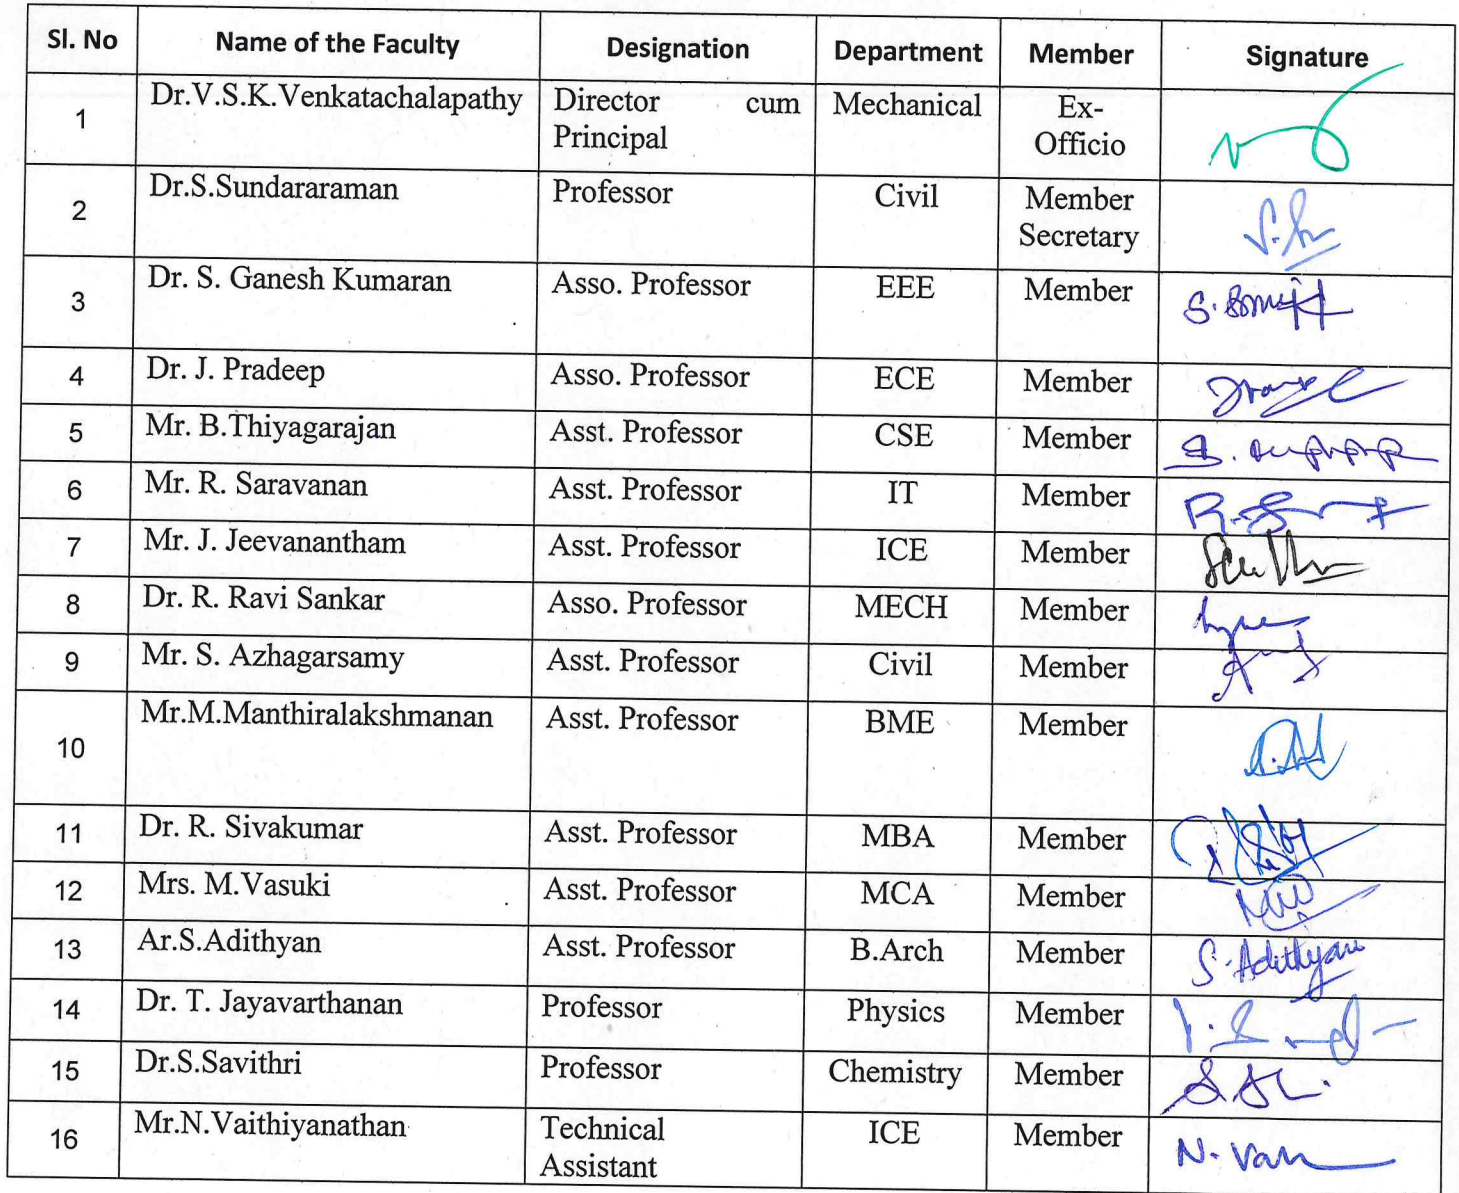 Sl. No Name of the Faculty Designation Department Member Signature
1 Dr.V.S.K.Venkatachalapathy Director cum Mechanical Ex-
Principal Officio
2 Dr.S.Sundararaman Professor Civil Member
Secretary
3 Dr. S. Ganesh Kumaran Asso. Professor EEE Member
4 Dr. J. Pradeep Asso. Professor ECE Member
5 Mr. B.Thiyagarajan Asst. Professor CSE Member
6 Mr. R. Saravanan Asst. Professor IT Member
7 Mr. J. Jeevanantham Asst. Professor ICE Member
8 Dr. R. Ravi Sankar Asso. Professor MECH Member
9 Mr. S. Azhagarsamy Asst. Professor Civil Member
10 Mr.M.Manthiralakshmanan Asst. Professor BME Member
11 Dr. R. Sivakumar Asst. Professor MBA Member
12 Mrs. M.Vasuki Asst. Professor MCA Member
13 Ar.S.Adithyan Asst. Professor B.Arch Member S. Adithyan
14 Dr. T. Jayavarthanan Professor Physics Member
15 Dr.S.Savithri Professor Chemistry Member
16 Mr.N.Vaithiyanathan Technical ICE Member
Assistant